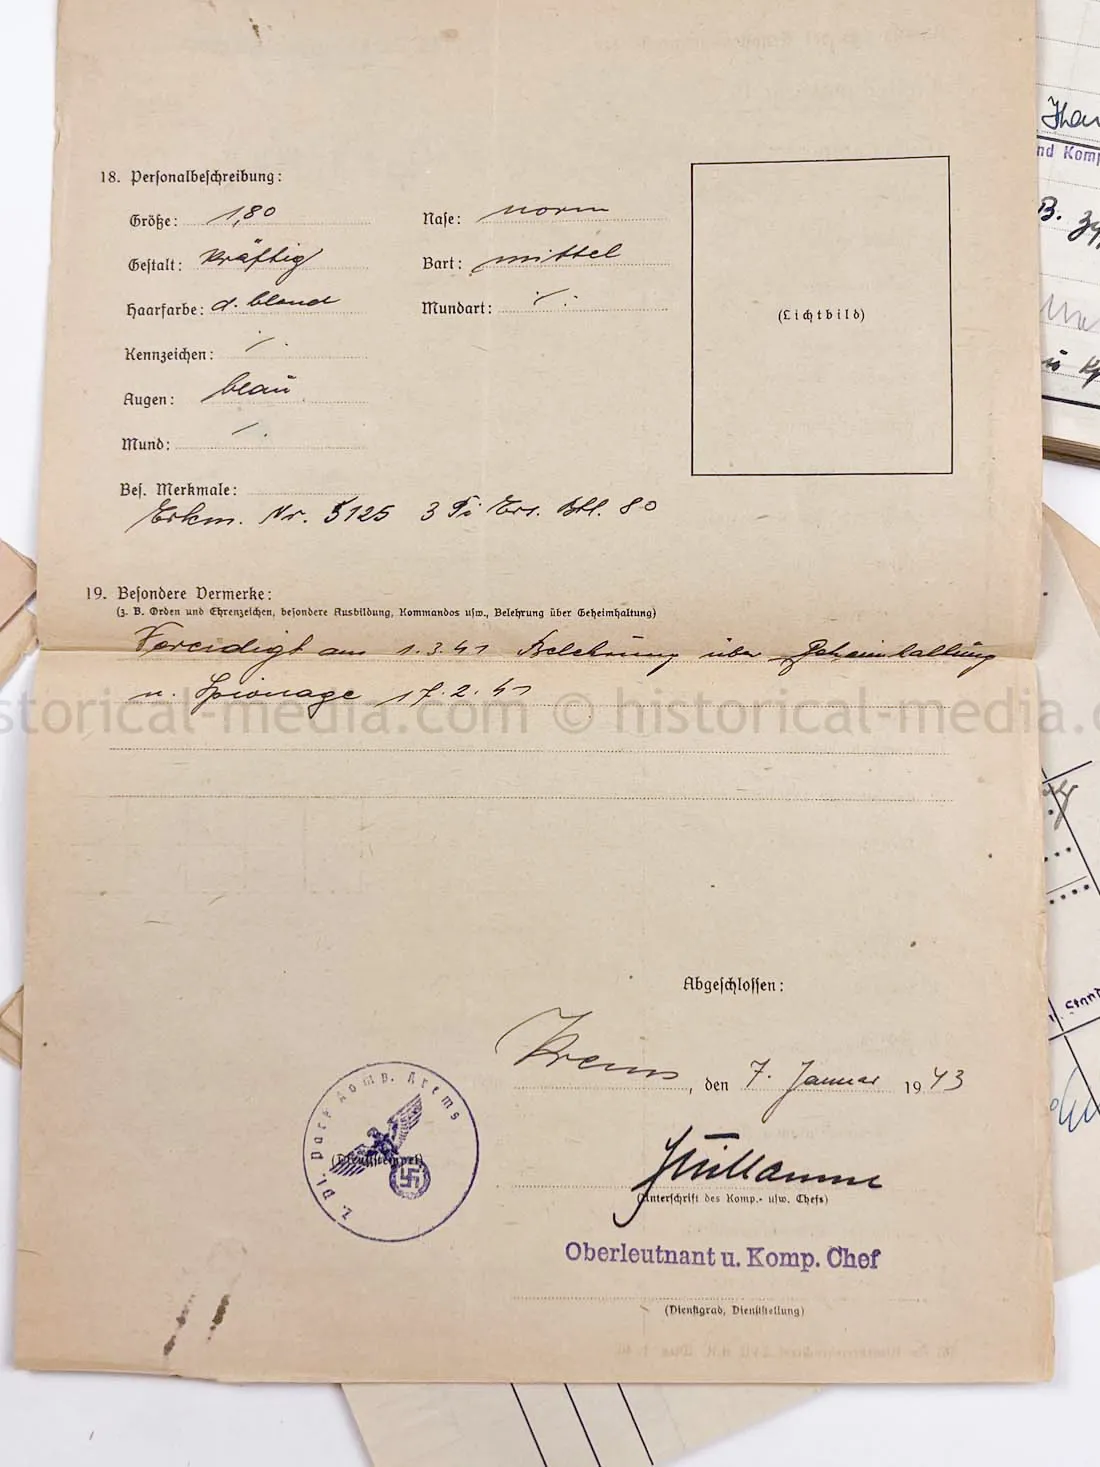 18. Personalbeschreibung:
Größe: 1,80
Nase: norm
Gestalt: kräftig
Bart: mittel
Haarfarbe: d. blond
Mundart: ./.
(Lichtbild)
Kennzeichen: ./.
Augen: blau
Mund: ./.
Bes. Merkmale:
Erkm. Nr. 5125 3 Pi Ers. Btl. 80
19. Besondere Vermerke:
(z. B. Orden und Ehrenzeichen, besondere Ausbildung, Kommandos usw., Belehrung über Geheimhaltung)
Vereidigt am 1.3.41 Belehrung über Geheimhaltung
u. Spionage 17.2.41
historical-media.com © historical-media.c
Abgeschlossen:
Krems, den 7. Januar 1943
Pi. Park Komp. Krems
(Dienststempel)
(Unterschrift des Komp.- usw. Chefs)
Oberleutnant u. Komp. Chef
(Dienstgrad, Dienststellung)
nd Komp
B.